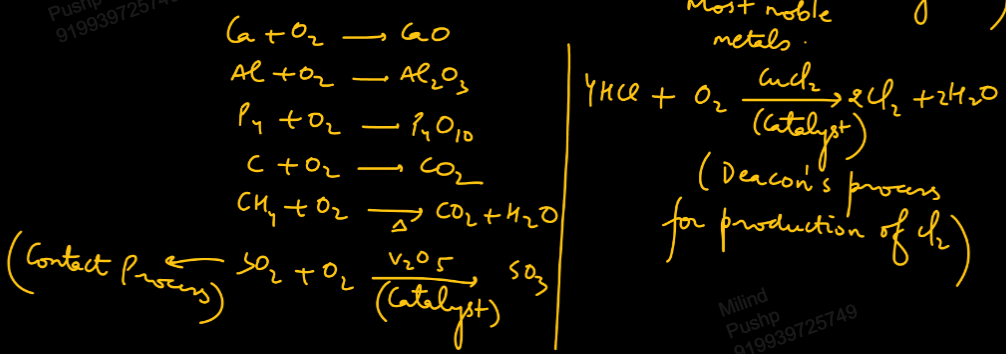 Pushp
919939725749
Ca + O₂ → CaO
Al + O₂ → Al₂O₃
P₄ + O₂ → P₄O₁₀
C + O₂ → CO₂
CH₄ + O₂ →Δ CO₂ + H₂O
(Contact Process) ← SO₂ + O₂ V₂O₅ → SO₃
(Catalyst)
Most noble
metals.
4HCl + O₂ CuCl₂ → 2Cl₂ + 2H₂O
(Catalyst)
(Deacon's process
for production of Cl₂)
Milind
Pushp
919939725749